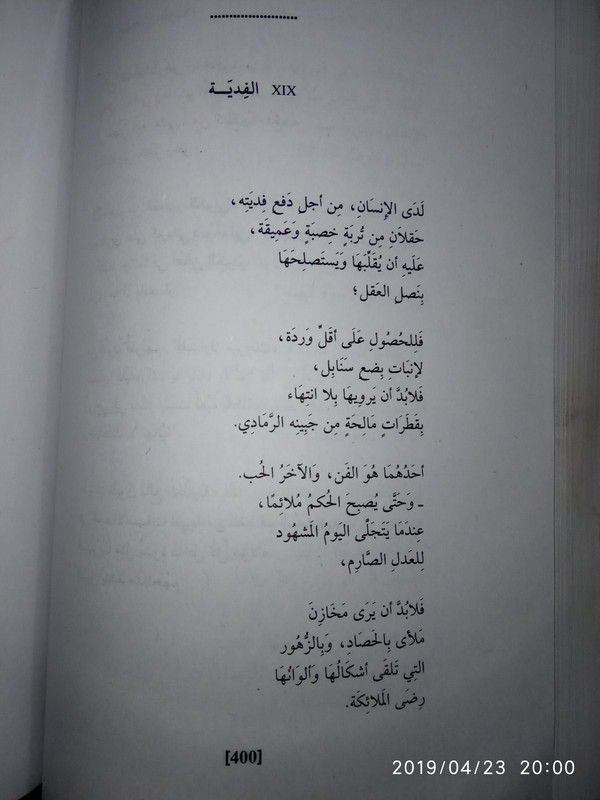 XIX الفِديَـــة
لَدَى الإنسَانِ، مِن أجلِ دَفعِ فِديَتِه،
حَقلاَنِ مِن تُربَةٍ خِصبَةٍ وَعَمِيقَة،
عَلَيهِ أن يُقَلِّبَهَا وَيَستَصلِحَهَا
بِنَصلِ العَقل؛
فَلِلحُصُولِ عَلَى أقَلِّ وَردَة،
لإنبَاتِ بِضعِ سَنَابِل،
فَلابُدَّ أن يَروِيهَا بِلا انتِهَاء
بِقَطَرَاتٍ مَالِحَةٍ مِن جَبِينِه الرَّمَادِي.
أحَدُهُمَا هُوَ الفَن، وَالآخَرُ الحُب.
ـ وَحَتَّى يُصبِحَ الحُكمُ مُلائِمًا،
عِندَمَا يَتَجَلَّى اليَومُ المَشهُود
لِلعَدلِ الصَّارِم،
فَلابُدَّ أن يَرَى مَخَازِنَ
مَلأى بِالحَصَادِ، وَبِالزُّهُور
التِي تَلقَى أشكَالُهَا وَألوَانُهَا
رِضَى المَلائِكَة.
[400]
2019/04/23 20:00